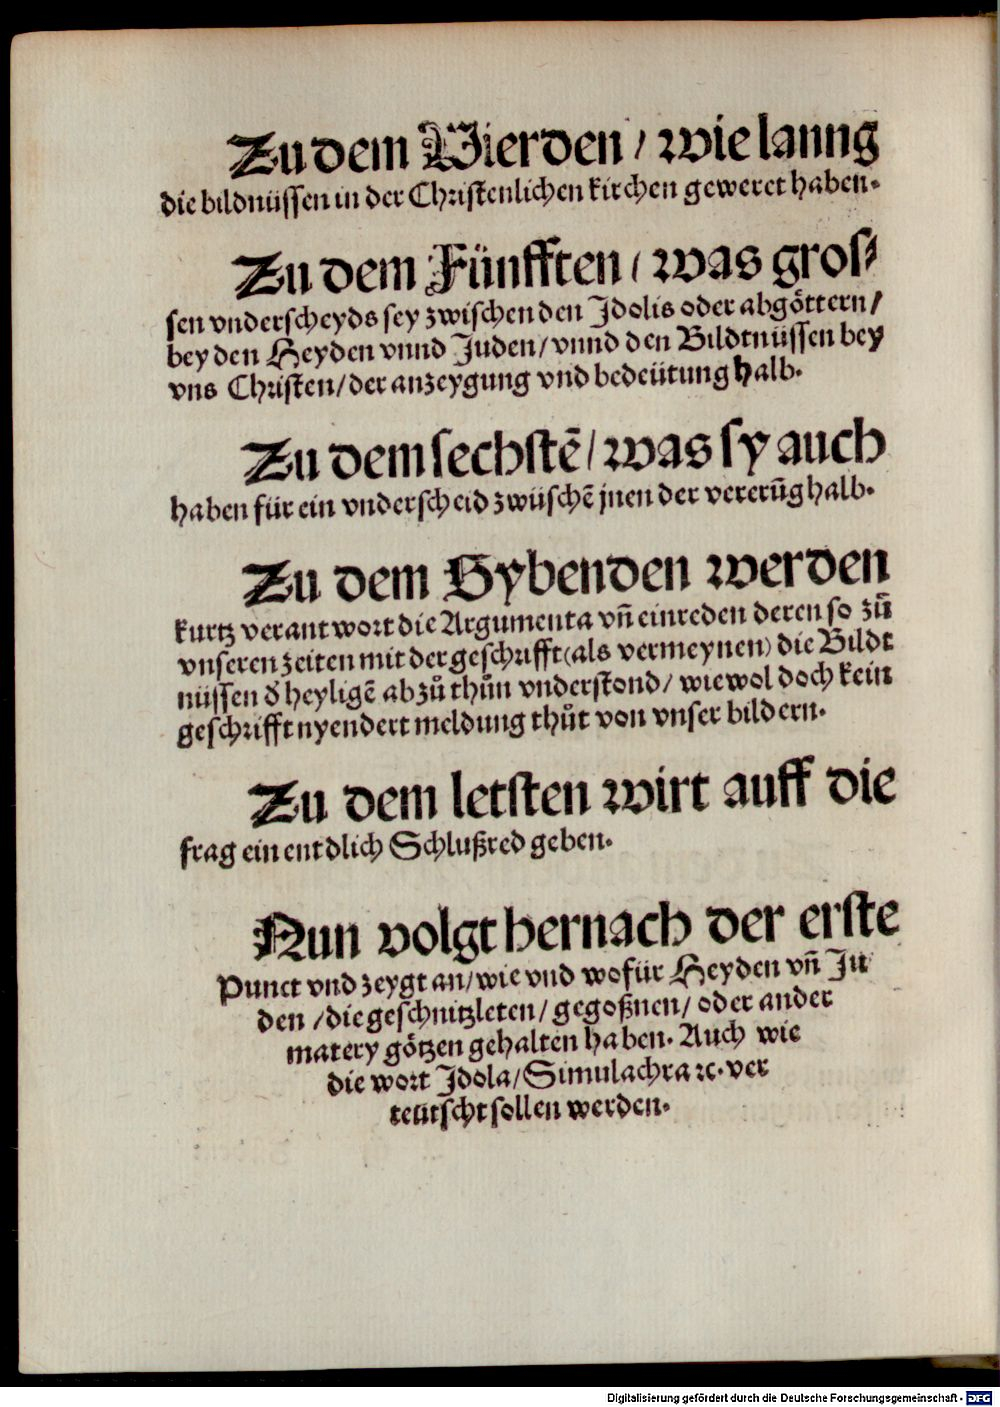 Zu dem Vierden / wie lanng
die bildnüssen in der Christenlichen kirchen geweret haben.
Zu dem Fünfften / was gros⸗
sen vnderscheyds sey zwischen den Idolis oder abgöttern /
bey den Heyden vnnd Juden / vnnd den Bildtnüssen bey
vns Christen / der anzeygung vnd bedeütung halb.
Zu dem sechstē / was sy auch
haben für ein vnderscheid zwüschē jnen der vererūg halb.
Zu dem Sybenden werden
kurtz verantwort die Argumenta vn̄ einreden deren so zů
vnseren zeiten mit der geschrifft (als vermeynen) die Bildt
nüssen d̕ heyligē abzůthůn vnderstond / wiewol doch kein
geschrifft nyendert meldung thůt von vnser bildern.
Zu dem letsten wirt auff die
frag ein entdlich Schlußred geben.
Nun volgt hernach der erste
Punct vnd zeygt an / wie vnd wofür Heyden vn̄ Ju
den / die geschnitzleten / gegoßnen / oder ander
matery götzen gehalten haben. Auch wie
die wort Idola / Simulachra ꝛc. ver
teütscht sollen werden.
Digitalisierung gefördert durch die Deutsche Forschungsgemeinschaft - DFG